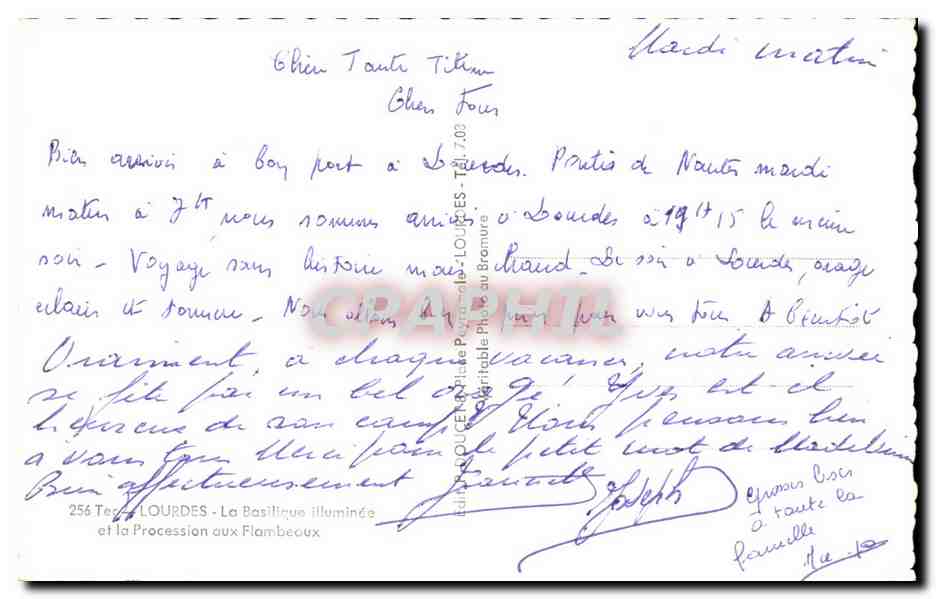 Mardi matin
Chère Tante
Chers Tous
Bien arrivés à bon port à Lourdes. Partis de Nantes mardi
matin à 7H nous sommes arrivés à Lourdes à 19H15 le même
soir - Voyage sans histoire mais chaud - Le soir à Lourdes, orage
éclairs et tonnerre - Nous allons pour vous tous A bientôt
Vraiment, à chaque vacances, notre arrivée
se fête par un bel orage! Yves est il
heureux de son camp? Nous pensons bien
à vous tous Merci pour le petit mot de Madeleine
Bien affectueusement Joseph
Grosses bises
à toute la
famille
256 Ter - LOURDES - La Basilique illuminée
et la Procession aux Flambeaux
Edit. P. DOUCET, 8, Place Peyramale - LOURDES - Tél. 7.03
Véritable Photo au Bromure
CPAPHIL